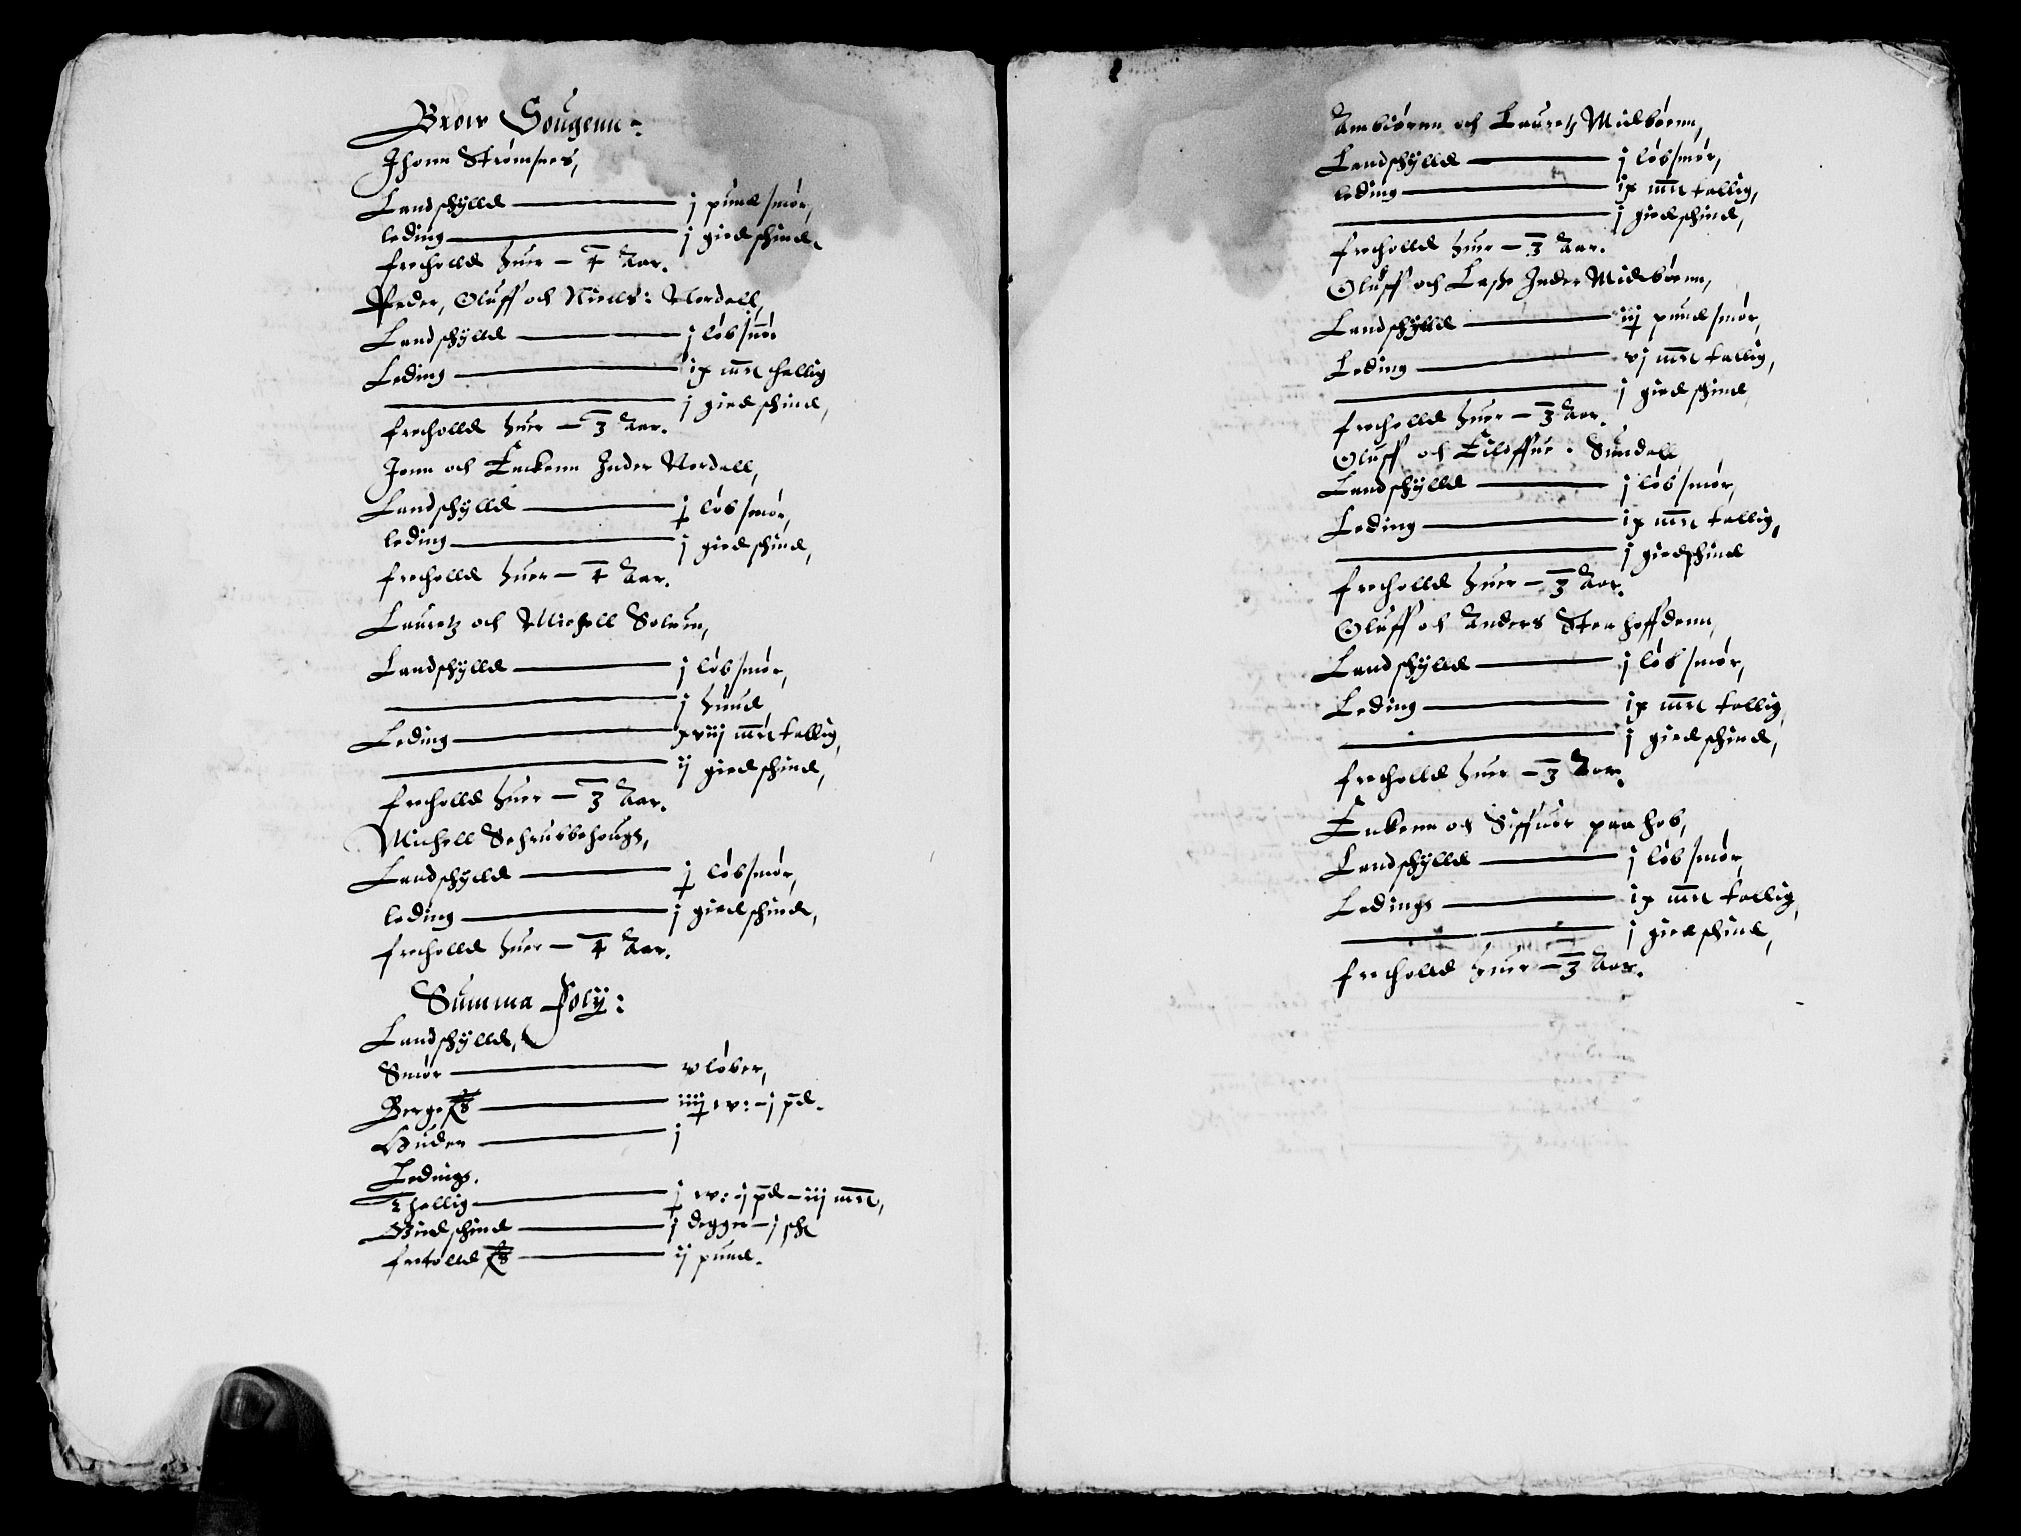 Brow Sougenn:
Jhonn Strømsnes,
Landschylld — j pund smør,
leding — j giedschind,
frecholld huer — 4 Aar.
Peder, Oluff och Niells: Nordall,
Landschylld — j løb smør
Leding — ix mrk thallig
— j giedschind,
frecholld huer — 3 Aar.
Jonn och Enckenn Jnder Nordall,
Landschylld — j løb smør,
leding — j giedschind,
frecholld huer — 4 Aar.
Lauretz och Michell
Landschylld — j løb smør,
— j huud,
Leding — xviij mrk tallig,
— ij giedschind,
frecholld huer — 3 Aar.
Michell
Landschylld — j løb smør,
leding — j giedschind,
frecholld huer — 4 Aar.
Summa foly:
Landschylld,
Smør — v løber,
Berge — iiij w: — j pd.
Huder — j
Ledings.
Thallig — j w: — j pd — iij mrk,
Giedschind — j degger — j sk
fretolld — ij pund.
Ambiørnn och Lauretz Midbøenn,
Landschylld — j løb smør,
leding — ix mrk tallig,
— j giedschind,
frecholld huer — 3 Aar.
Oluff och Lasse Jnder Midbøenn,
Landschylld — iij pund smør,
Leding — vj mrk tallig,
— j giedschind
frecholld huer — 3 Aar.
Oluff och Eiloffue: Sundall
Landschylld — j løb smør,
Leding — ix mrk tallig,
— j giedschind
frecholld huer — 3 Aar.
Oluff och Anders Stenhoffdenn,
Landschylld — j løb smør,
Leding — ix mrk tallig,
— j giedschind,
frecholld huer — 3 Aar.
Enckenn och Siffuer paa
Landschylld — j løb smør,
Ledings — ix mrk tallig,
— j giedschind,
frecholld huer — 3 Aar.